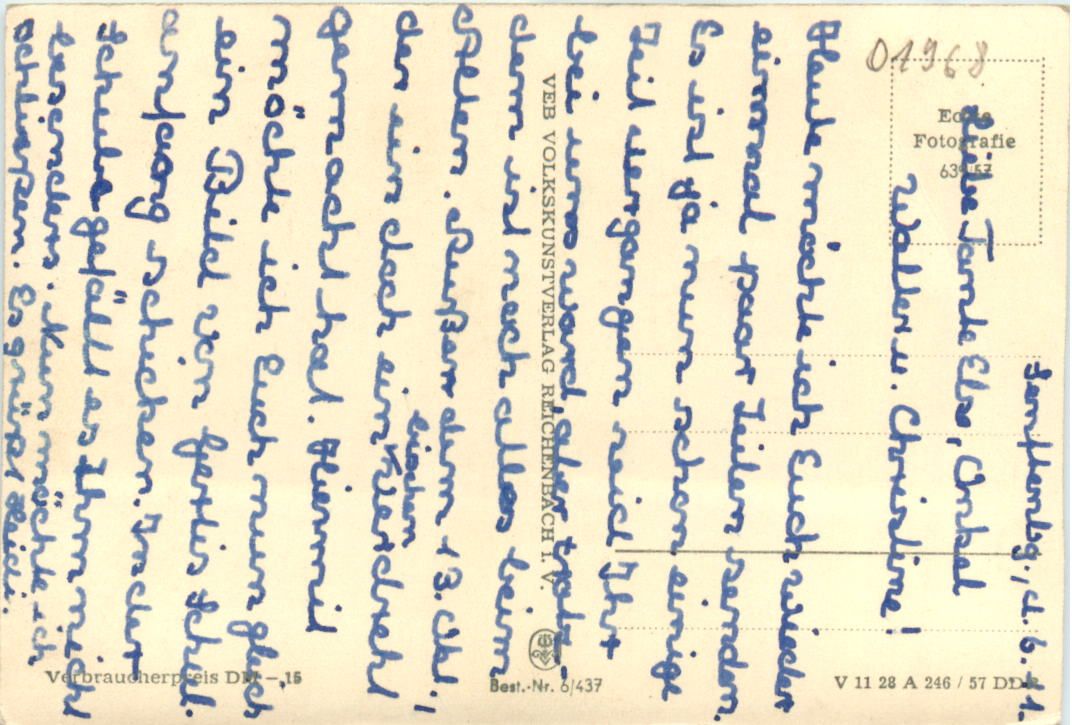 01968
Echte
Fotografie
639/57
VEB VOLKSKUNSTVERLAG REICHENBACH I. V.
Verbraucherpreis DM -,15
Best.-Nr. 6/437
V 11 28 A 246 / 57 DDR
Senftenbg., d. 6. 11.
Liebe Tante Els, Onkel
Walter u. Christine!
Heute möchte ich Euch wieder
einmal paar Zeilen senden.
Es ist ja nun schon einige
Zeit vergangen seid Ihr
bei uns ward, aber trotz-
dem ist noch alles beim
Alten. Außer dem 13. Okt.,
der uns doch ein bischen Kleidscht
gemacht hat. Hiermit
möchte ich Euch nun gleich
ein Bild von Gertis Schul-
anfang schicken. In der
Schule gefällt es Ihr nicht
besonders. Nun möchte ich
schließen. Es grüßt Heidi.